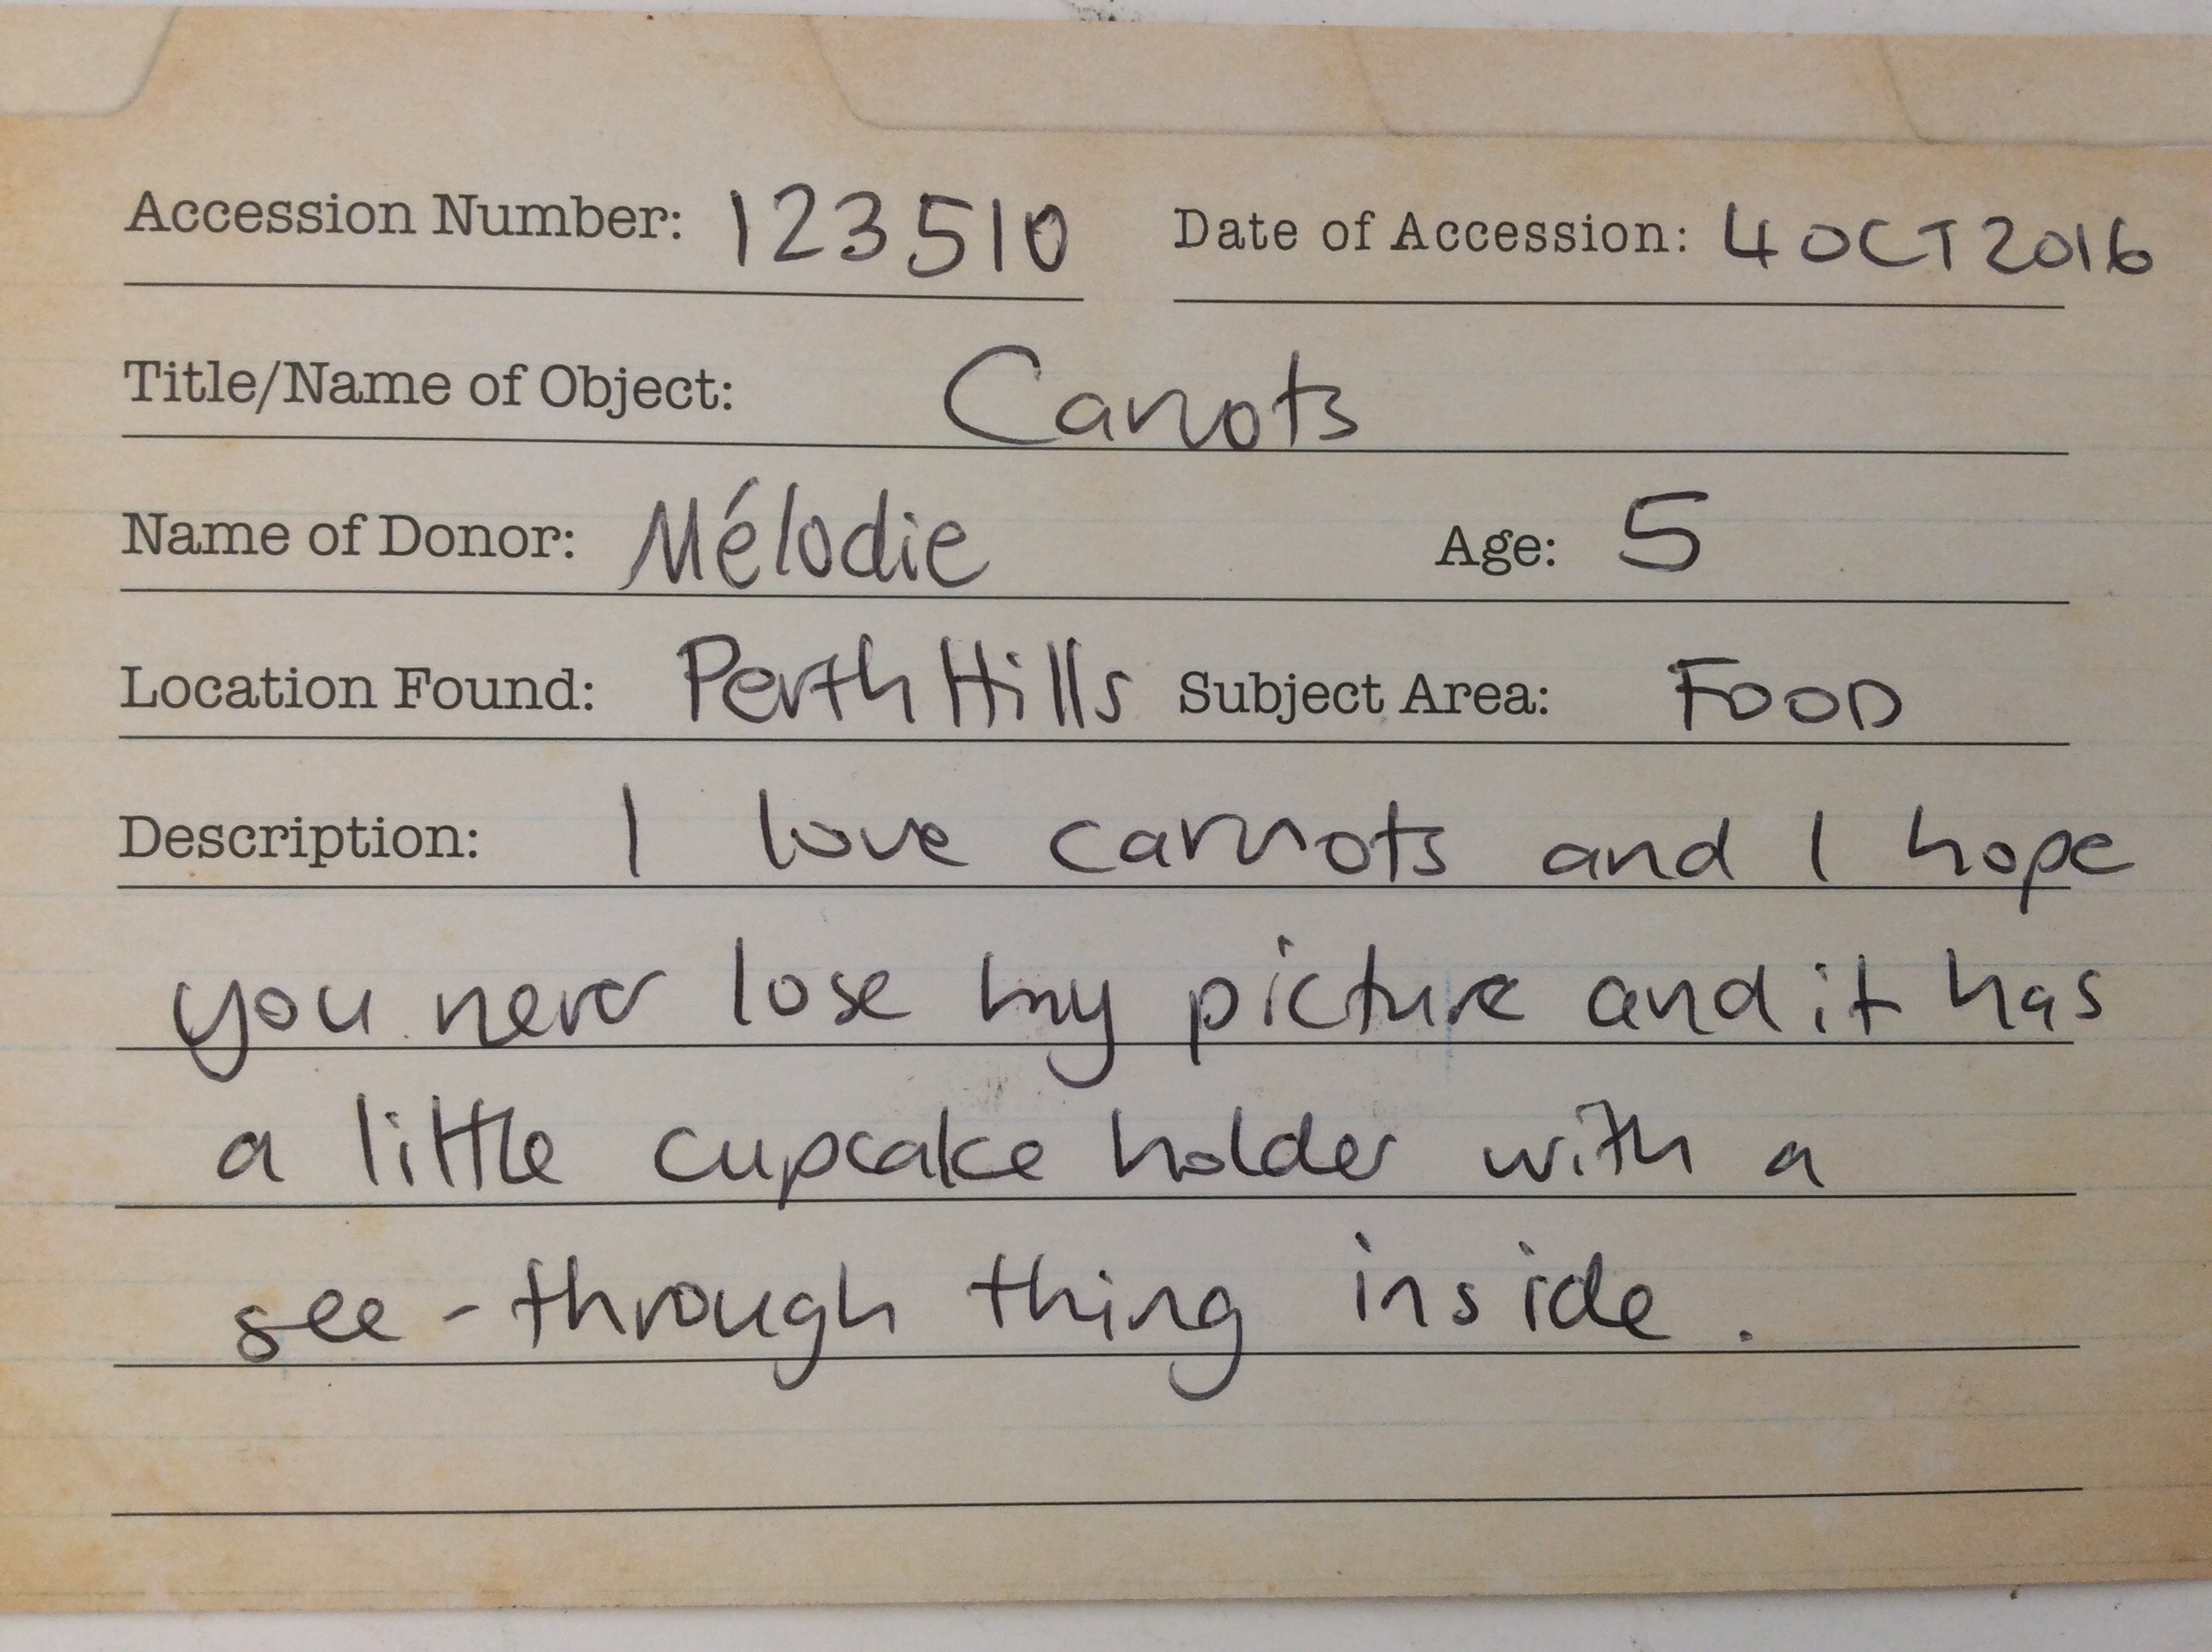 Accession Number: 123510 Date of Accession: 4 OCT 2016
Title/Name of Object: Carrots
Name of Donor: Mélodie Age: 5
Location Found: Perth Hills Subject Area: FOOD
Description: I love carrots and I hope
you never lose my picture and it has
a little cupcake holder with a
see-through thing inside.